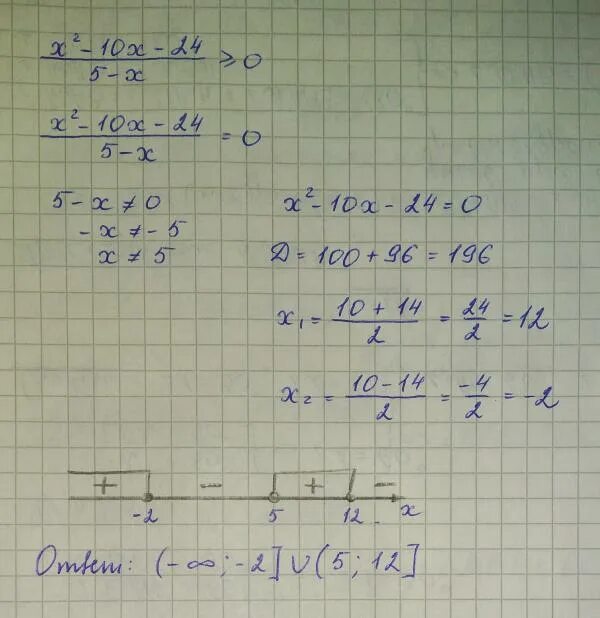 x² - 10x - 24 / 5 - x ≥ 0
x² - 10x - 24 / 5 - x = 0
5 - x ≠ 0
- x ≠ - 5
x ≠ 5
x² - 10x - 24 = 0
D = 100 + 96 = 196
x₁ = 10 + 14 / 2 = 24 / 2 = 12
x₂ = 10 - 14 / 2 = -4 / 2 = -2
+ - + -
-2 5 12 x
Ответ: (-∞; -2] ∪ (5; 12]